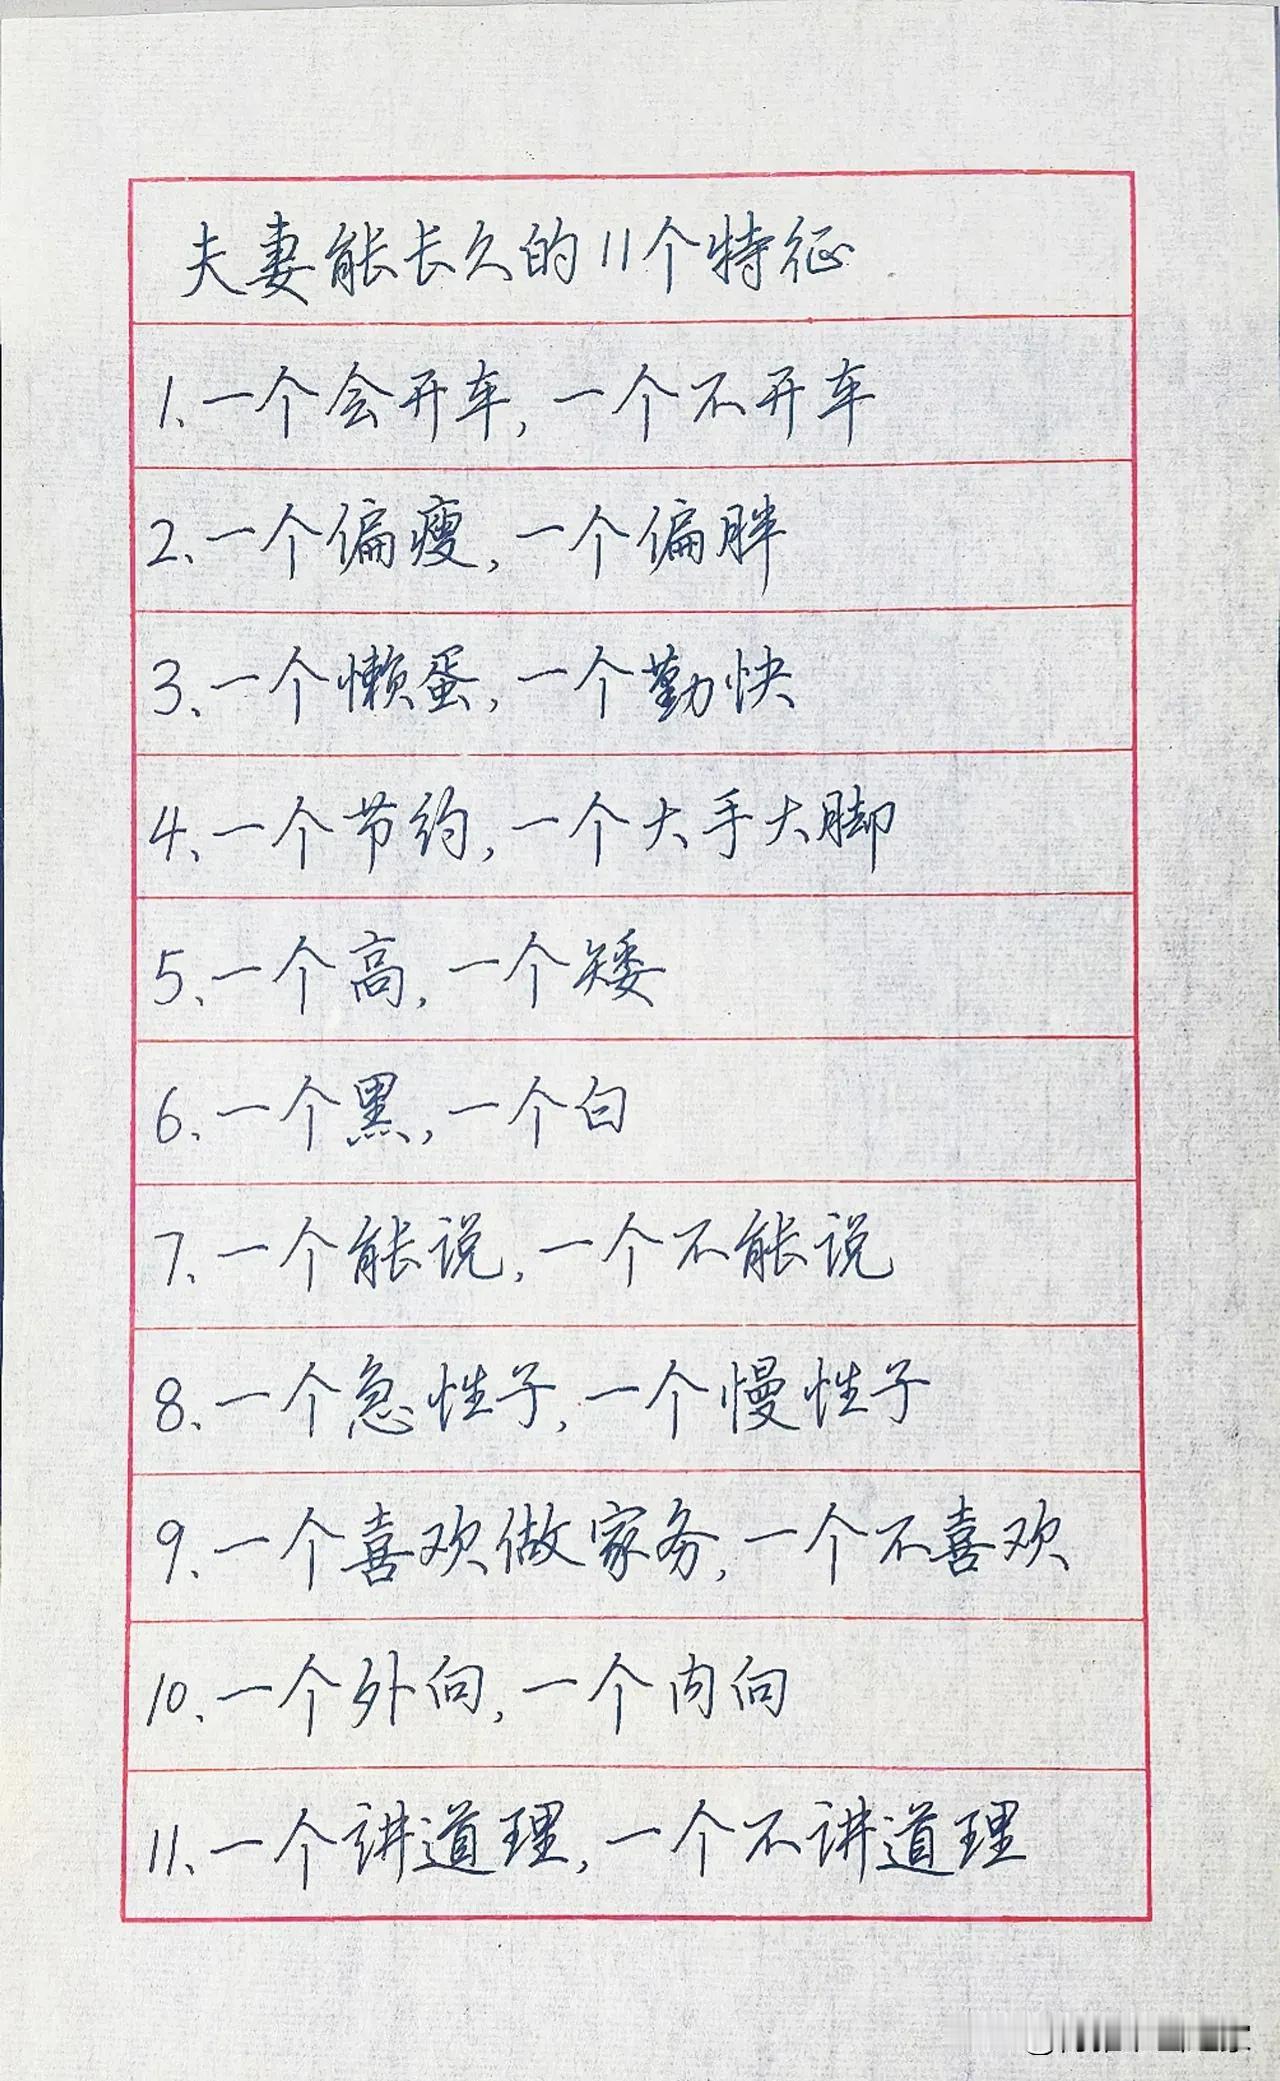 夫妻能长久的11个特征
1、一个会开车,一个不开车
2、一个偏瘦,一个偏胖
3、一个懒蛋,一个勤快
4、一个节约,一个大手大脚
5、一个高,一个矮
6、一个黑,一个白
7、一个能说,一个不能说
8、一个急性子,一个慢性子
9、一个喜欢做家务,一个不喜欢
10、一个外向,一个内向
11、一个讲道理,一个不讲道理